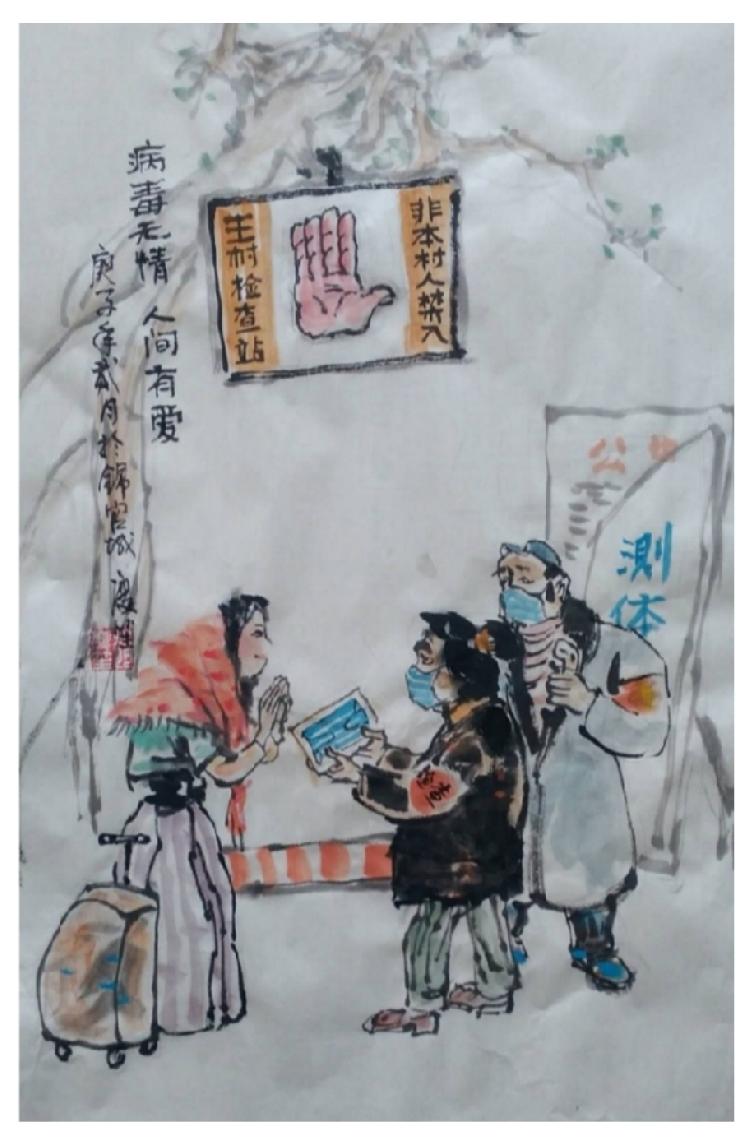 病毒无情 人间有爱
庚子年贰月於锦官城
非本村人禁入
王村检查站
公
测体
检查